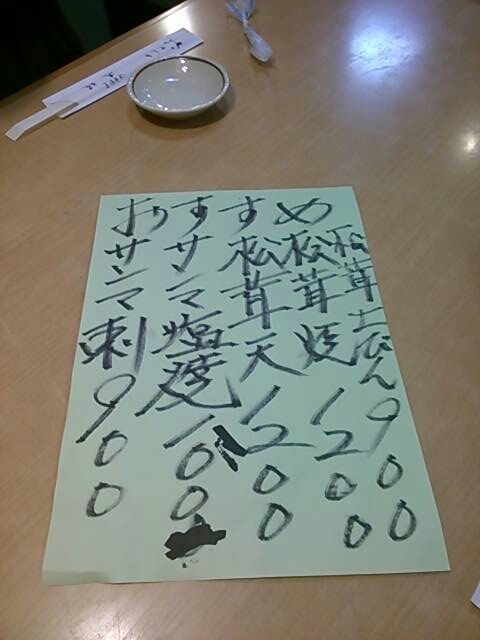 おすすめ
松茸土びん900
松茸焼1200
松茸天1200
サンマ塩焼1000
サンマ刺900